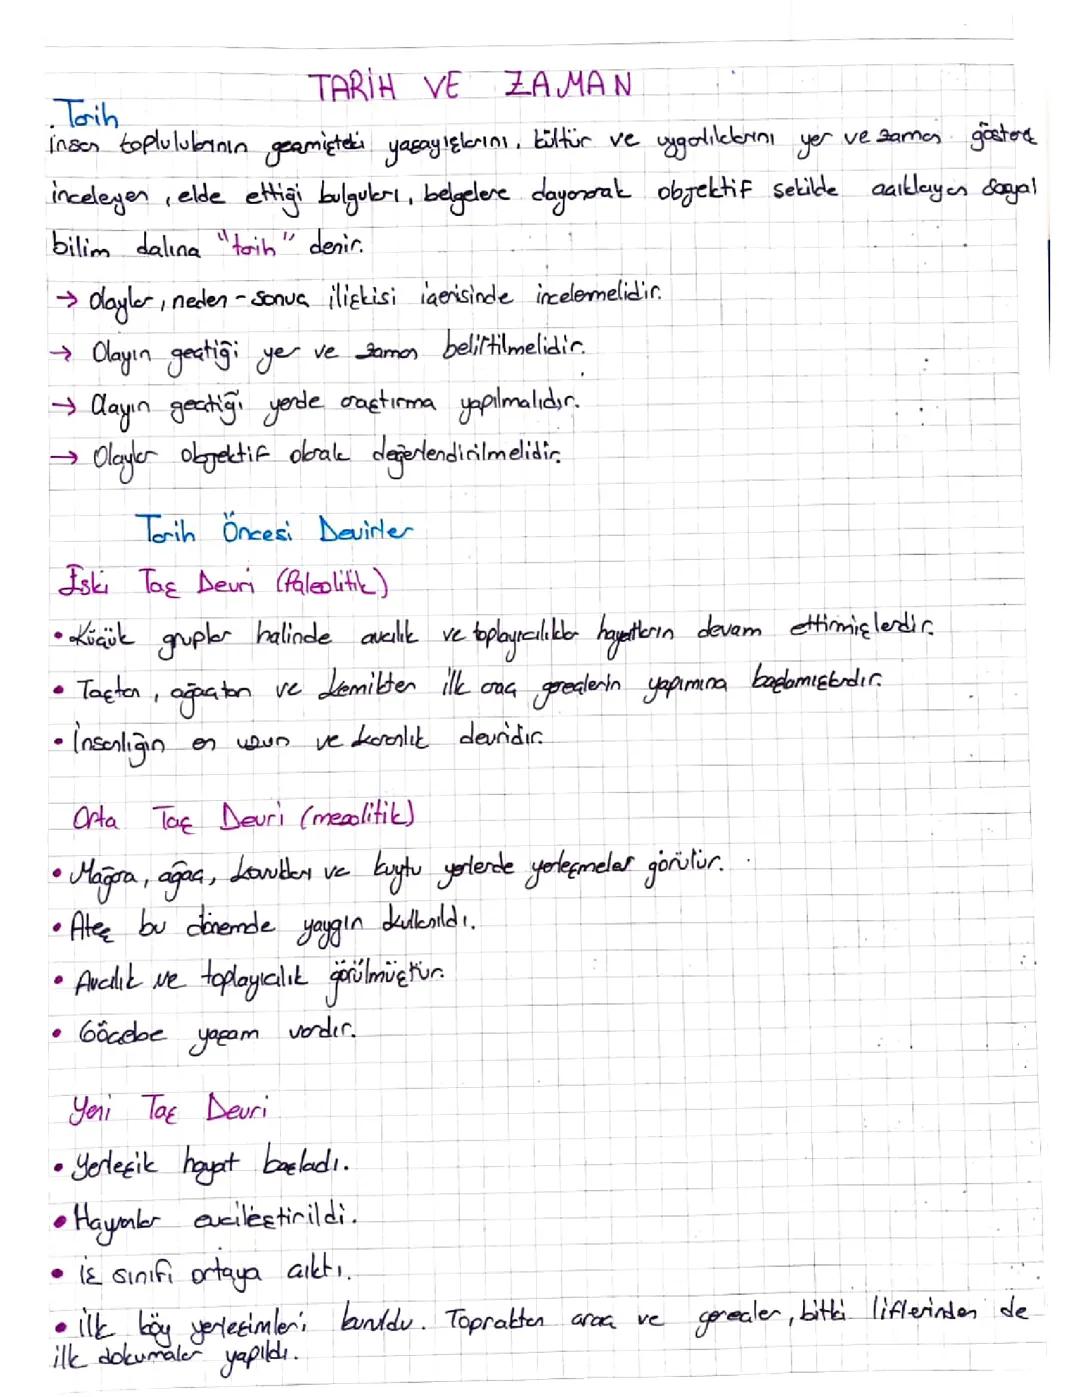 TARİH VE ZAMAN
Tarih
insan topluluklarının geçmişteki yaşayışlarını, kültür ve uygarlıklarını yer ve zaman göstererek
inceleyen, elde ettiği bulguları, belgelere dayanarak objektif şekilde açıklayan sosyal
bilim dalına "tarih" denir.
→ Olaylar, neden-sonuç ilişkisi içerisinde incelemelidir.
→ Olayın geçtiği yer ve zaman belirtilmelidir.
→ Olayın geçtiği yerde araştırma yapılmalıdır.
→ Olaylar objektif olarak değerlendirilmelidir.
Tarih Öncesi Devirler
Eski Taş Devri (Paleolitik)
• Küçük gruplar halinde avcılık ve toplayıcılıkla hayatların devam ettirmişlerdir.
• Taştan, ağaçtan ve kemikten ilk araç gereçlerin yapımına başlamışlardır.
• İnsanlığın en uzun ve karanlık devridir.
Orta Taş Devri (mezolitik)
• Mağara, ağaç, kovukları ve kuytu yerlerde yerleşmeler görülür.
• Ateş bu dönemde yaygın kullanıldı.
• Avcılık ve toplayıcılık görülmüştür.
• Göçebe yaşam vardır.
Yeni Taş Devri
• Yerleşik hayat başladı.
• Hayvanlar evcilleştirildi.
• İş sınıfı ortaya çıktı.
• İlk köy yerleşimleri kuruldu. Topraktan araç ve gereçler, bitki liflerinden de
ilk dokumalar yapıldı.